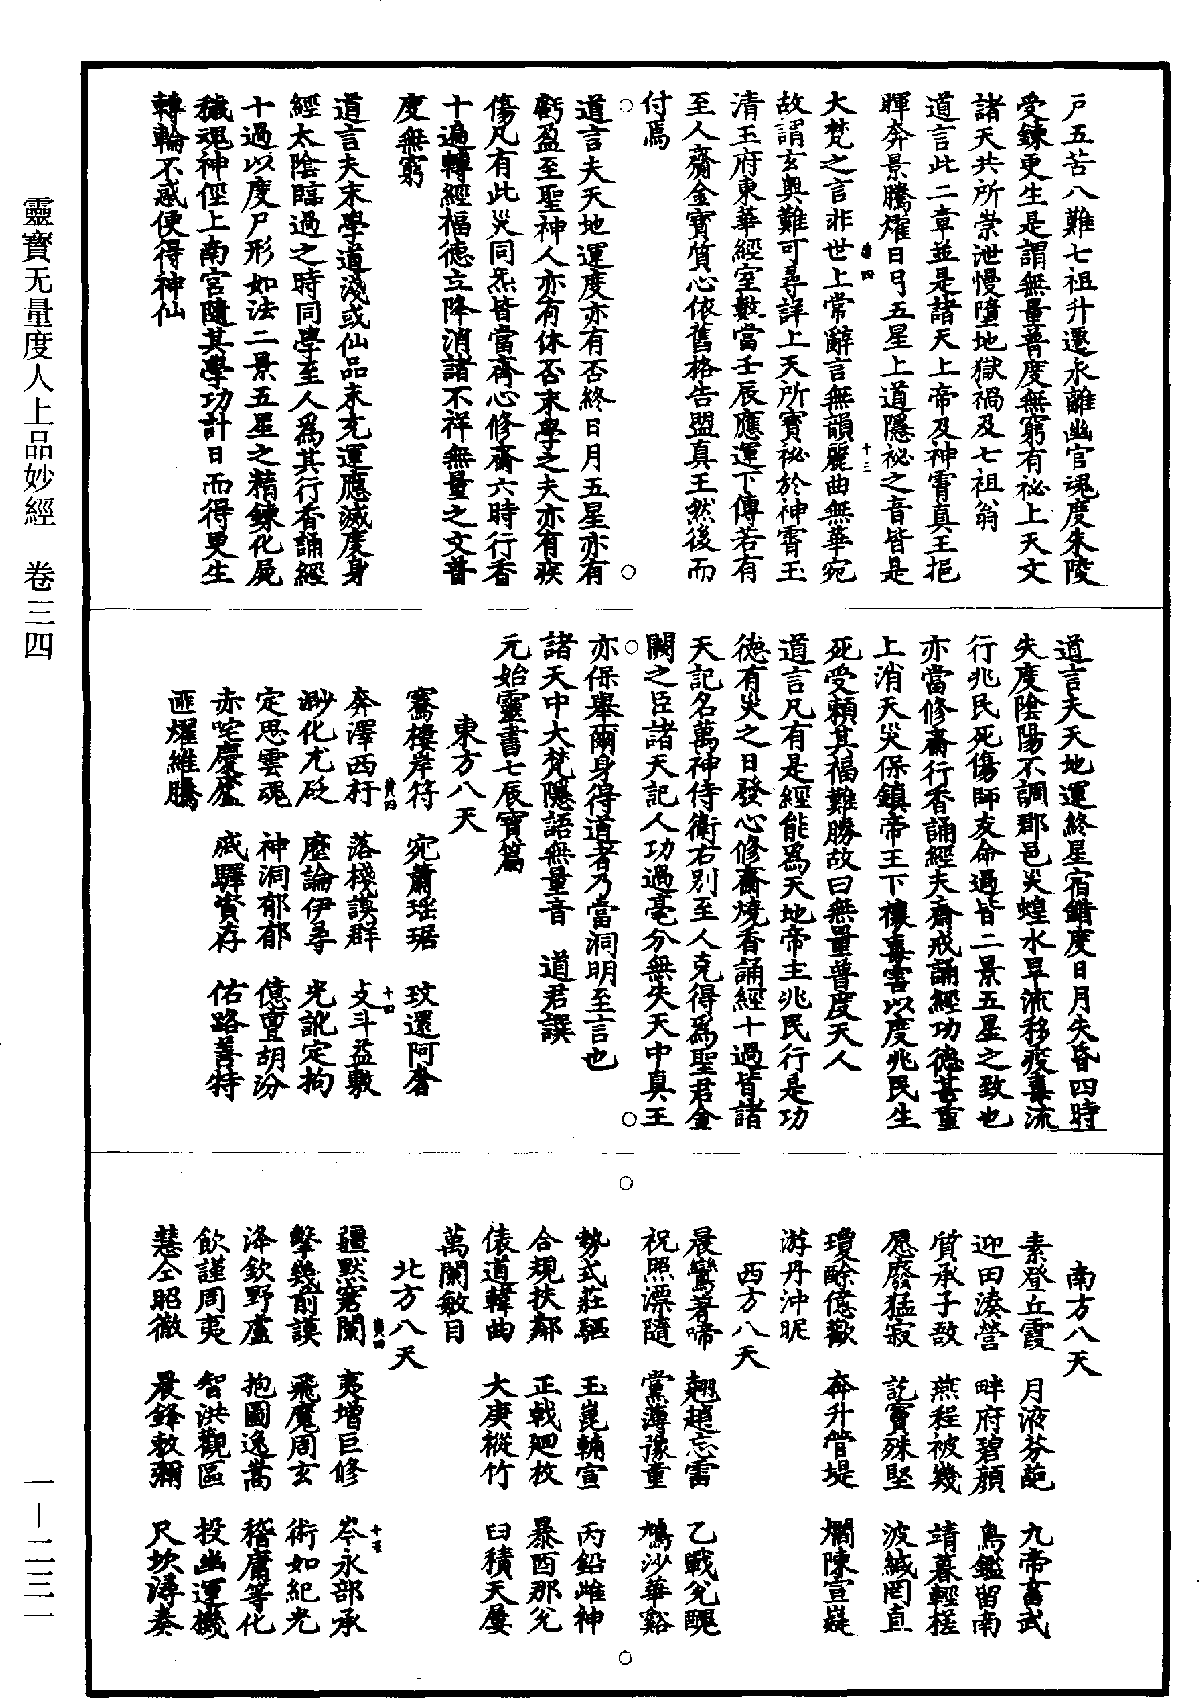 戶五苦八難七祖升遷永離幽官魂度朱陵
受鍊更生是謂無量普度無窮有祕上天文
諸天共所崇泄慢墮地獄禍及七祖翁
道言此二章並是諸天上帝及神霄真王挹
暉奔景騰燿日月五星上道隱祕之音皆是
大梵之言非世上常辭言無韻麗曲無華宛
故謂玄奧難可尋詳上天所寶祕於神霄玉
清王府東華經室數當壬辰應運下傳若有
至人齎金寶質心依舊格告盟真王然後而
付焉
道言夫天地運度亦有否終日月五星亦有
虧盈至聖神人亦有休否末學之夫亦有疾
傷凡有此災同炁皆當齊心修齋六時行香
十遍轉經福德立降消諸不祥無量之文普
度無窮
道言夫末學道淺或仙品未充運應滅度身
經太陰臨過之時同學至人為其行香誦經
十過以度尸形如法二景五星之精鍊化屍
穢魂神徑上南宮隨其學功計日而得更生
轉輪不惑便得神仙
道言夫天地運終星宿錯度日月失昏四時
失度陰陽不調郡邑災蝗水旱流移疫毒流
行兆民死傷師友命過皆二景五星之致也
亦當修齋行香誦經夫齋戒誦經功德甚重
上消天災保鎮帝王下禳毒害以度兆民生
死受賴其福難勝故曰無量普度天人
道言凡有是經能為天地帝主兆民行是功
德有災之日發心修齋燒香誦經十過皆諸
天記名萬神侍衛右別至人克得為聖君金
闕之臣諸天記人功過毫分無失天中真王
亦保舉爾身得道者乃當洞明至言也
諸天中大梵隱語無量音　道君譔
元始靈書七辰寶篇
東方八天
騫樓岸符　宛蕭瑤琚　玟還阿奢
奔澤西籽　落棧謨群　攴斗益敷
渺化尤砭　塵論伊尋　光訛定拘
定思雲魂　神洞郁郁　億亶胡汾
赤咤慶廬　戚驛賓存　佑路善特
匪燿維騰
南方八天
素登丘霞　月液芬葩　九帝畜武
迎田湊營　畔府碧顏　鳥鑑留南
質承子敔　燕程被幾　靖暮輕槎
愿廢猛寂　託寶殊堅　波緘罔直
瓊酴億歡　奔升管堤　爛陳宣嶷
游丹沖昵
西方八天
晨鸞著啼　翹趙忘雷　乙戰兌醜
祝照漂隨　黨薄豫童　鳩沙華谿
勢式莊驅　玉崑輔宣　丙鉛雌神
合規扶鄰　正戟迴枚　暴酉那兌
俵道韓曲　大庚樅竹　臼積天屢
萬闌敏目
北方八天
疆默窘闌　夷增巨修　岑永部承
擎幾前謨　飛魔周玄　術如紀光
洚欽野蘆　抱圖逸蒿　稽庸等化
飲謹周夷　智洪觀區　投幽運機
慧仝昭徹　晨鋒敕彌　尺坎潯奏
靈寶无量度人上品妙經　卷三四
一—二三一